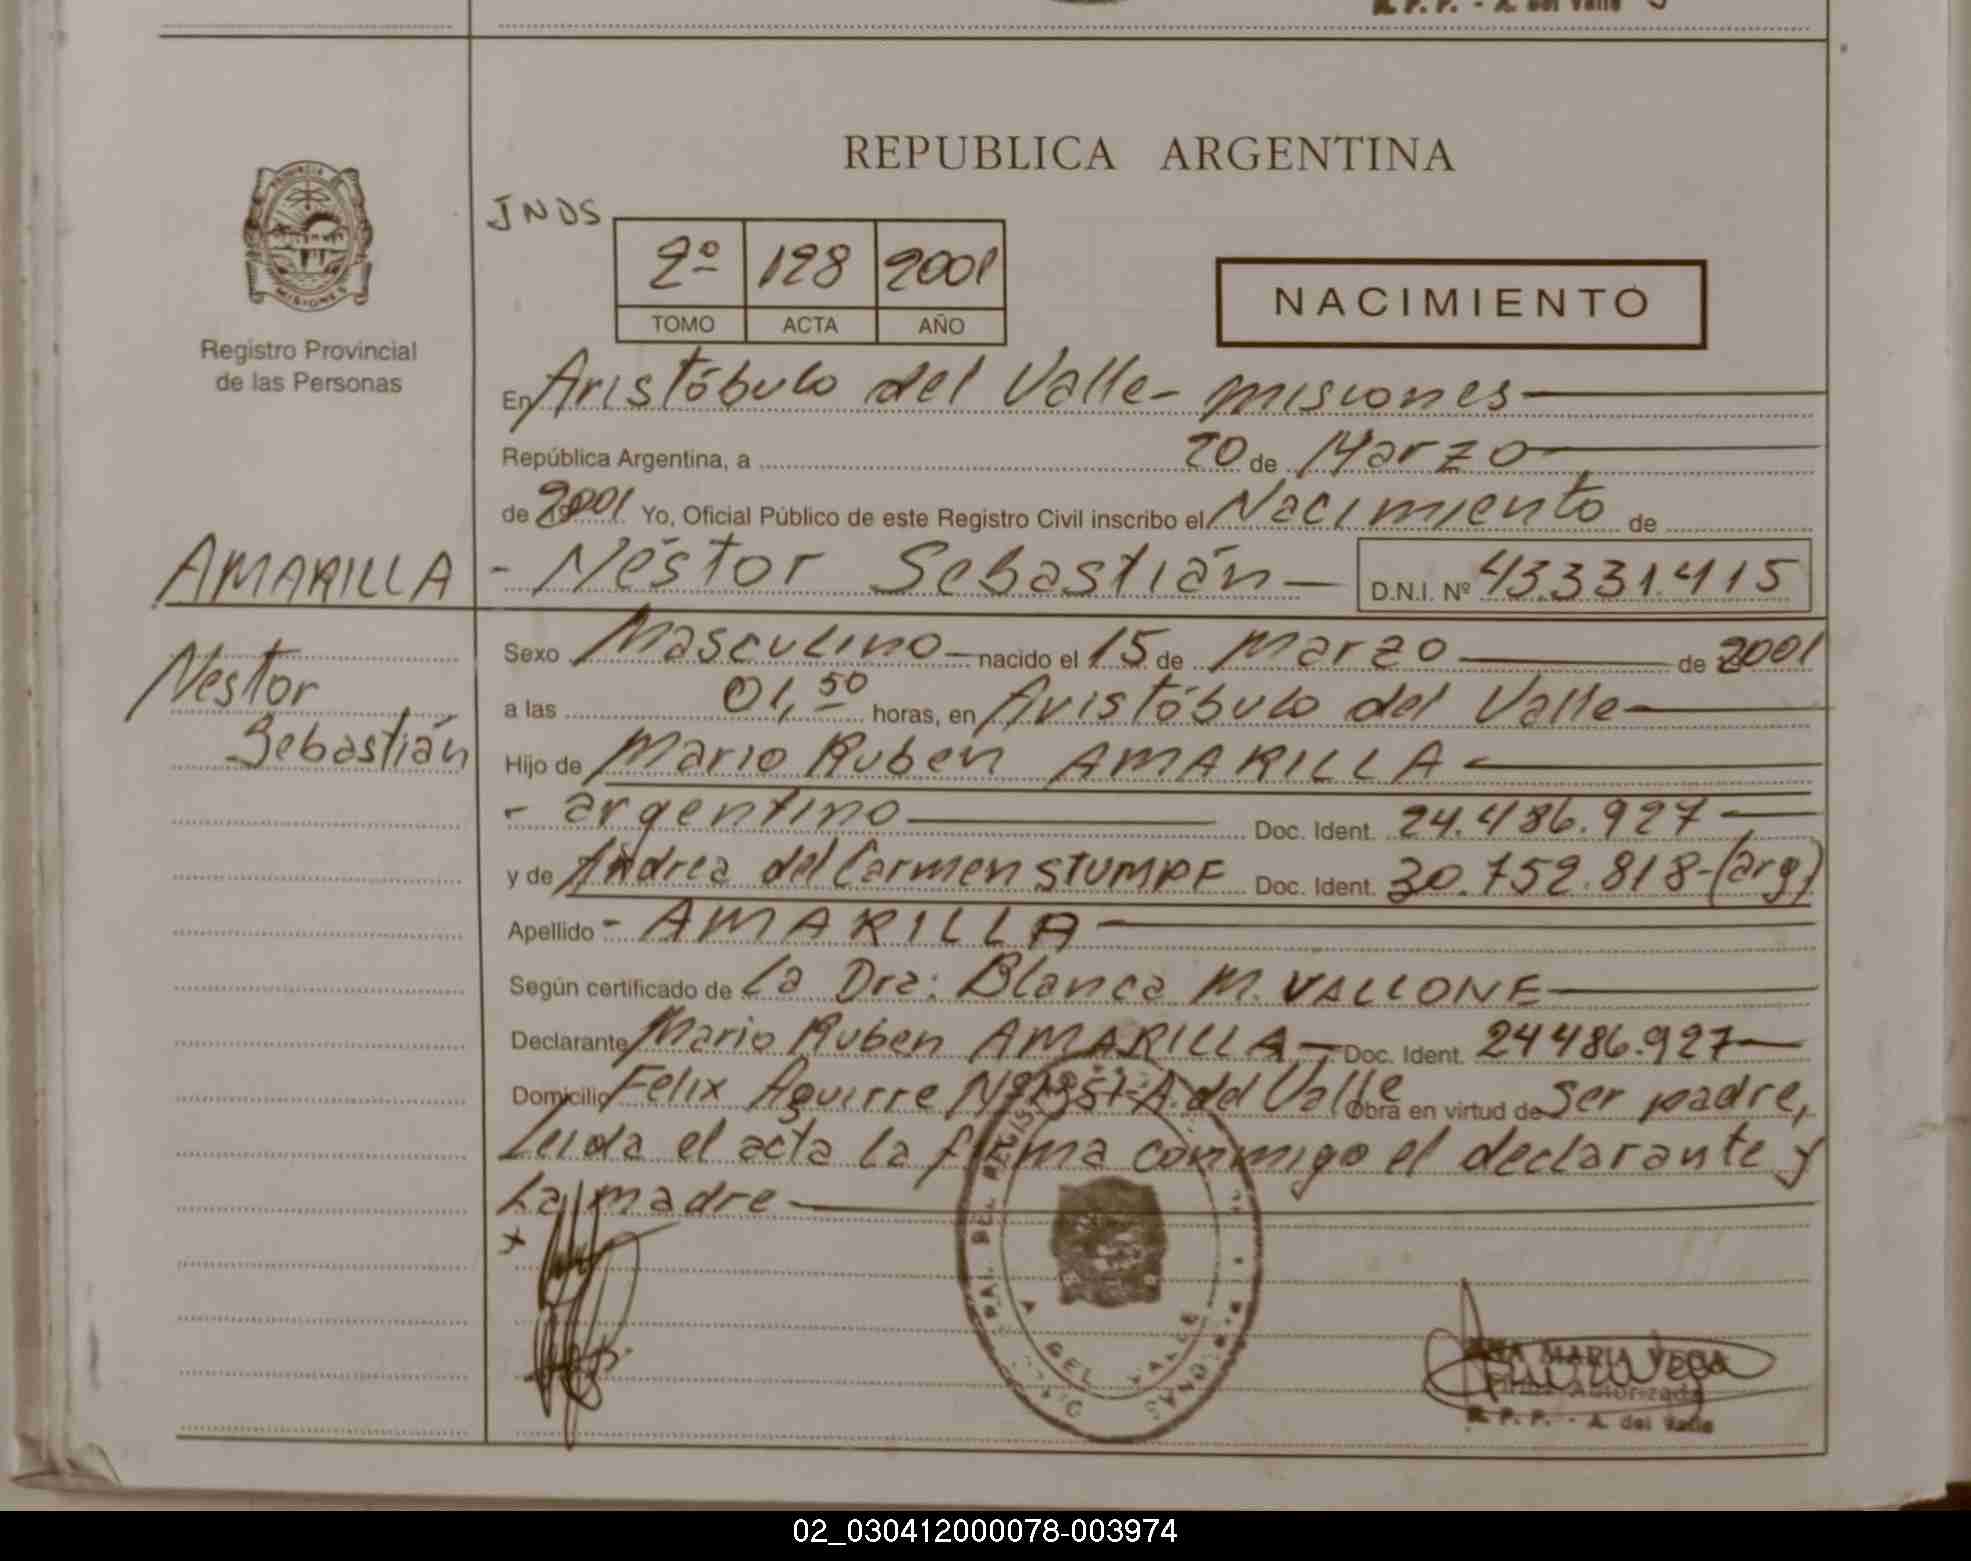 R. P. P. - A. del Valle
REPUBLICA ARGENTINA
PROVINCIA
MISIONES
Registro Provincial
de las Personas
JNDS
2º 128 2001
TOMO ACTA AÑO
NACIMIENTO
En Aristóbulo del Valle - Misiones
República Argentina, a 20 de Marzo
de 2001 Yo, Oficial Público de este Registro Civil inscribo el Nacimiento de
AMARILLA - Néstor Sebastián D.N.I. Nº 43.331.415
Néstor
Sebastián
Sexo Masculino nacido el 15 de Marzo de 2001
a las 01,50 horas, en Aristóbulo del Valle
Hijo de Mario Ruben AMARILLA
- argentino Doc. Ident. 24.486.927
y de Andrea del Carmen STUMPF Doc. Ident. 30.752.818-(arg)
Apellido - AMARILLA
Según certificado de La Dra: Blanca M. VALLONE
Declarante Mario Ruben AMARILLA Doc. Ident. 24486.927
Domicilio Felix Aguirre A. del Valle Obra en virtud de Ser padre,
Leida el acta la firma conmigo el declarante y
La madre
x
A DEL VALLE
ANA MARIA VEGA
Firma Autorizada
R. P. P. - A. del Valle
02_030412000078-003974